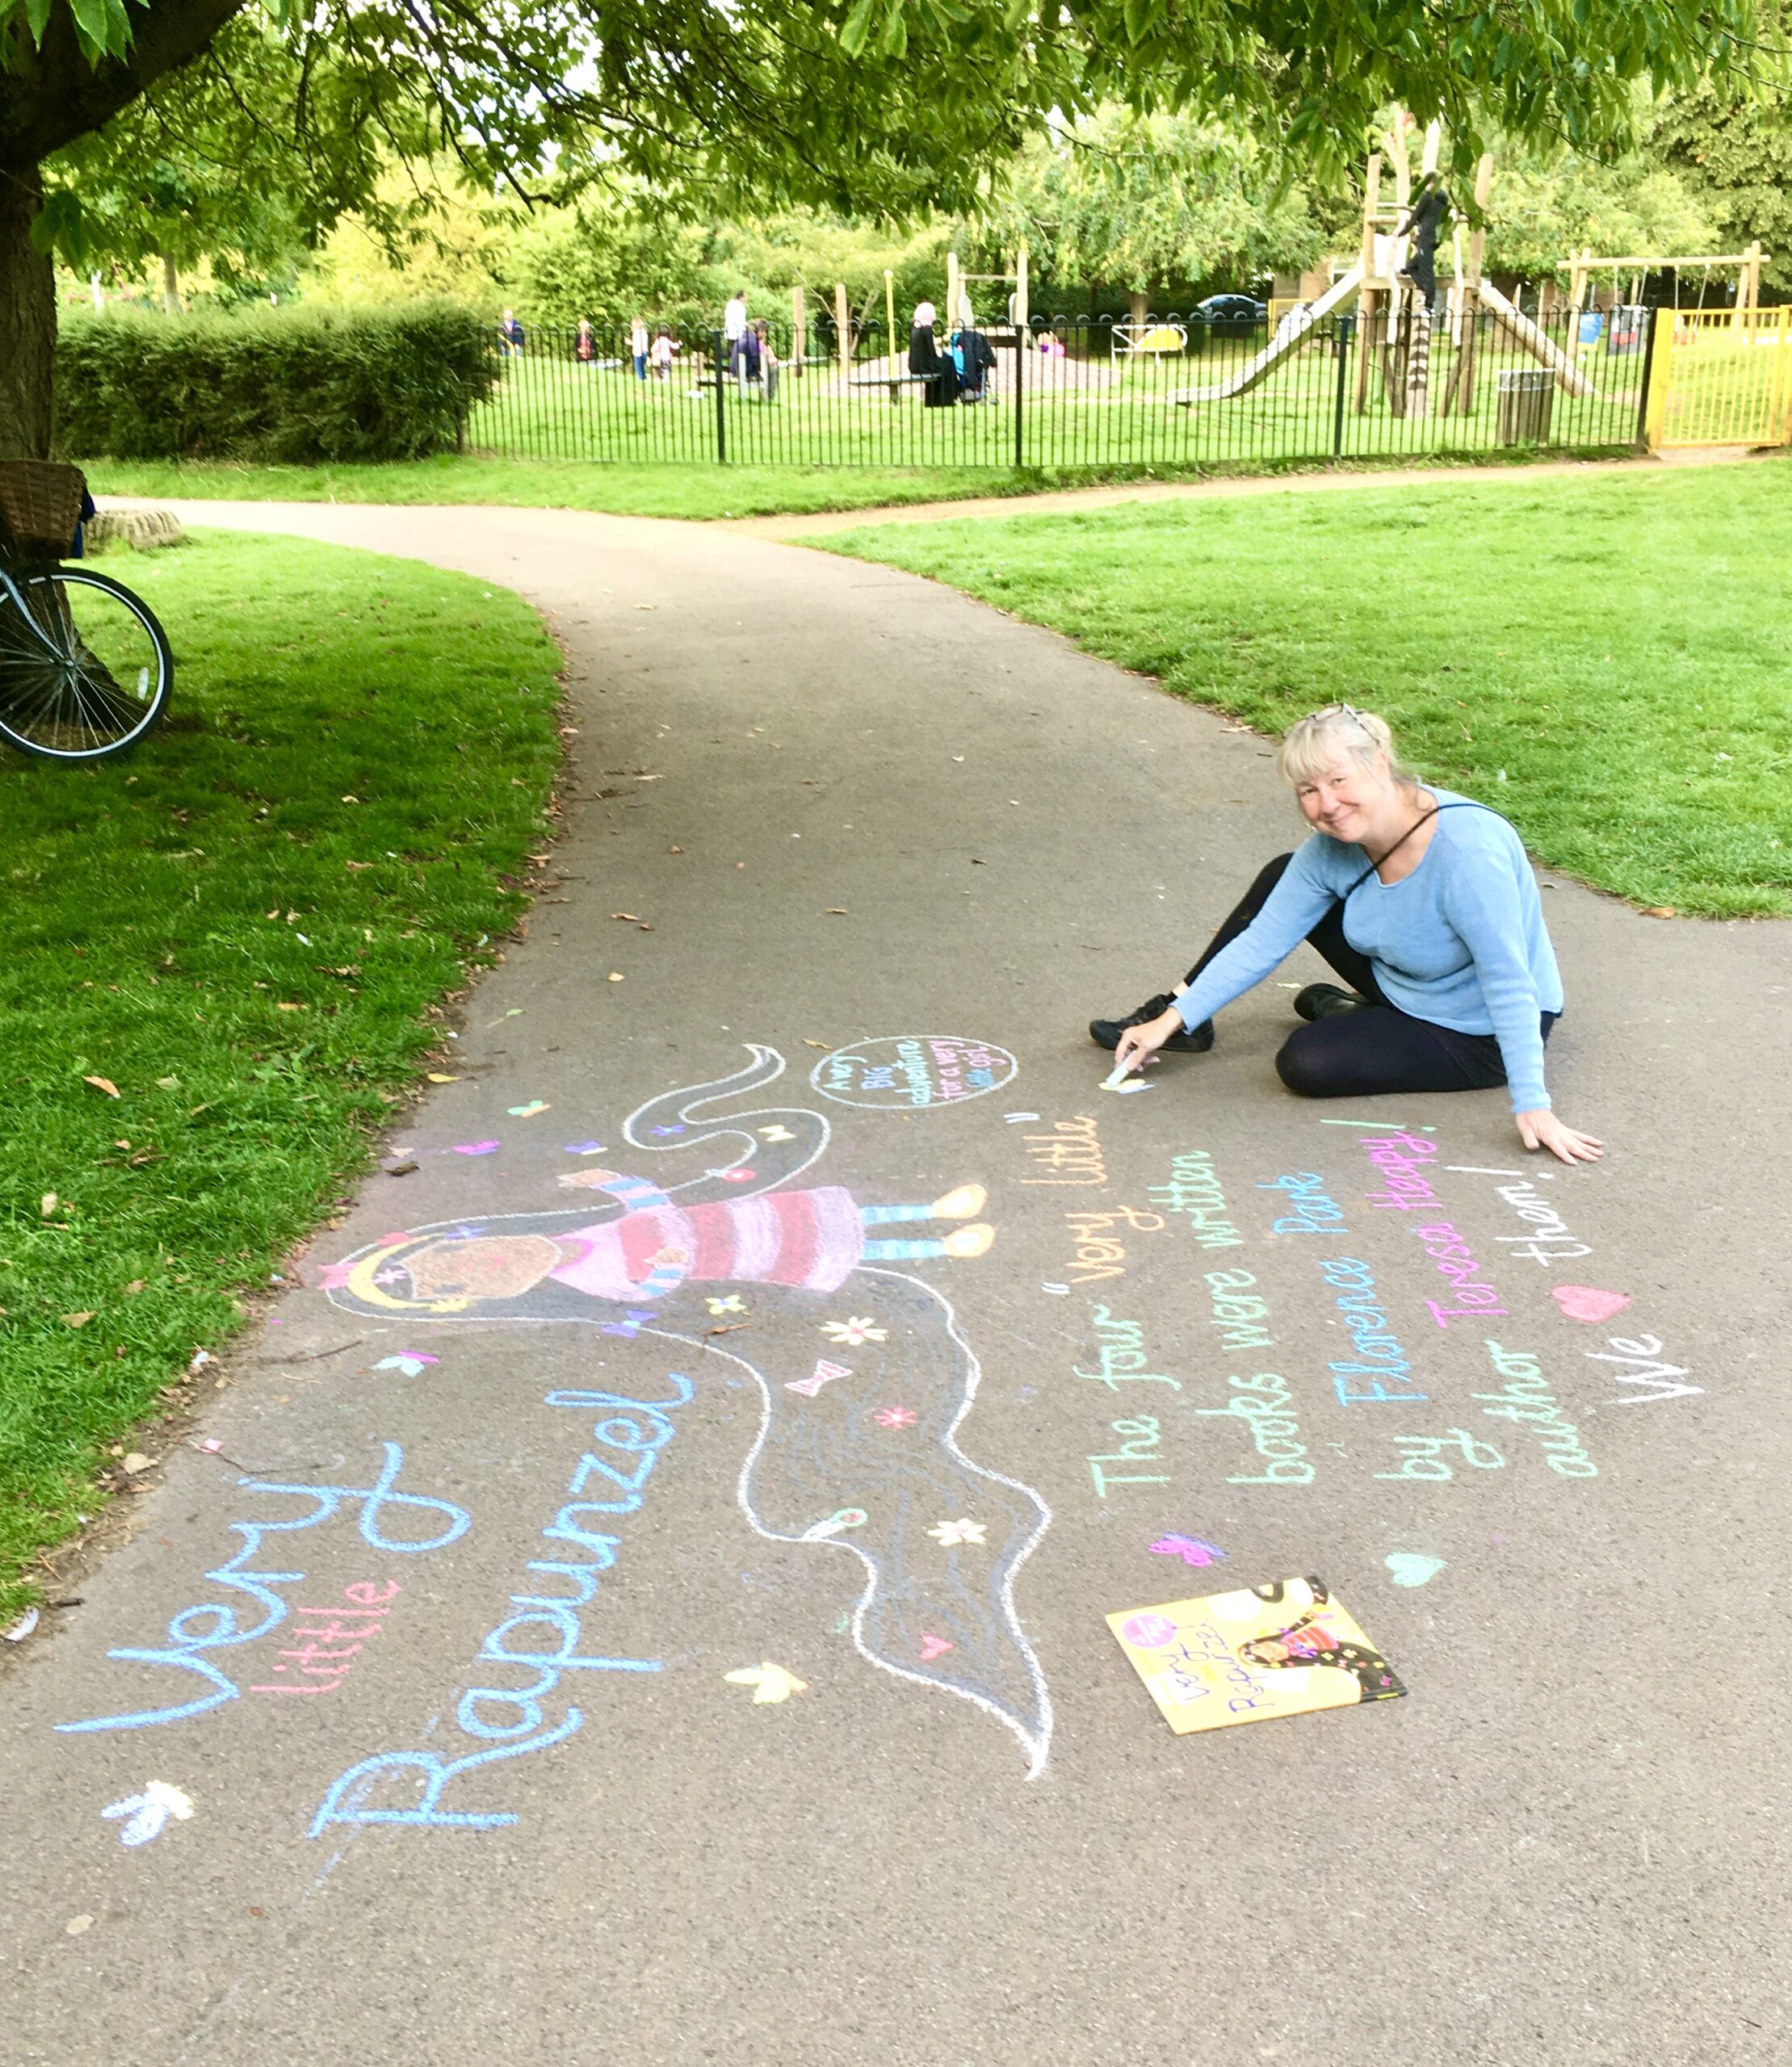 Very
Little
Rapunzel
A very
BIG
adventure
for a very
little girl
The four "very little"
books were written
by Florence Park
author Teresa Heapy!
We them!
Very
Rapunzel